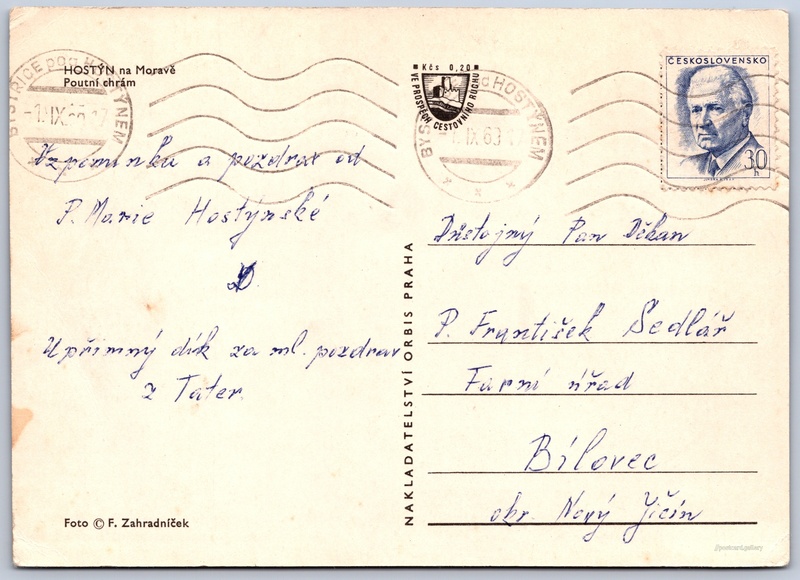 HOSTÝN na Moravě
Poutní chrám
Vzpomínku a pozdrav od
P. Marie Hostýnské
Upřímný dík za ml. pozdrav
z Tater.
Foto © F. Zahradníček
NAKLADATELSTVÍ ORBIS PRAHA
BYSTŘICE POD HOSTÝNEM
-1.IX.69
Kčs 0,20
VE PROSPĚCH CESTOVNÍHO RUCHU
BYS HOSTÝNEM
IX 69
ČESKOSLOVENSKO
30
h
Důstojný Pan Děkan
P. František Sedlář
Farní úřad
Bílovec
okr. Nový Jičín